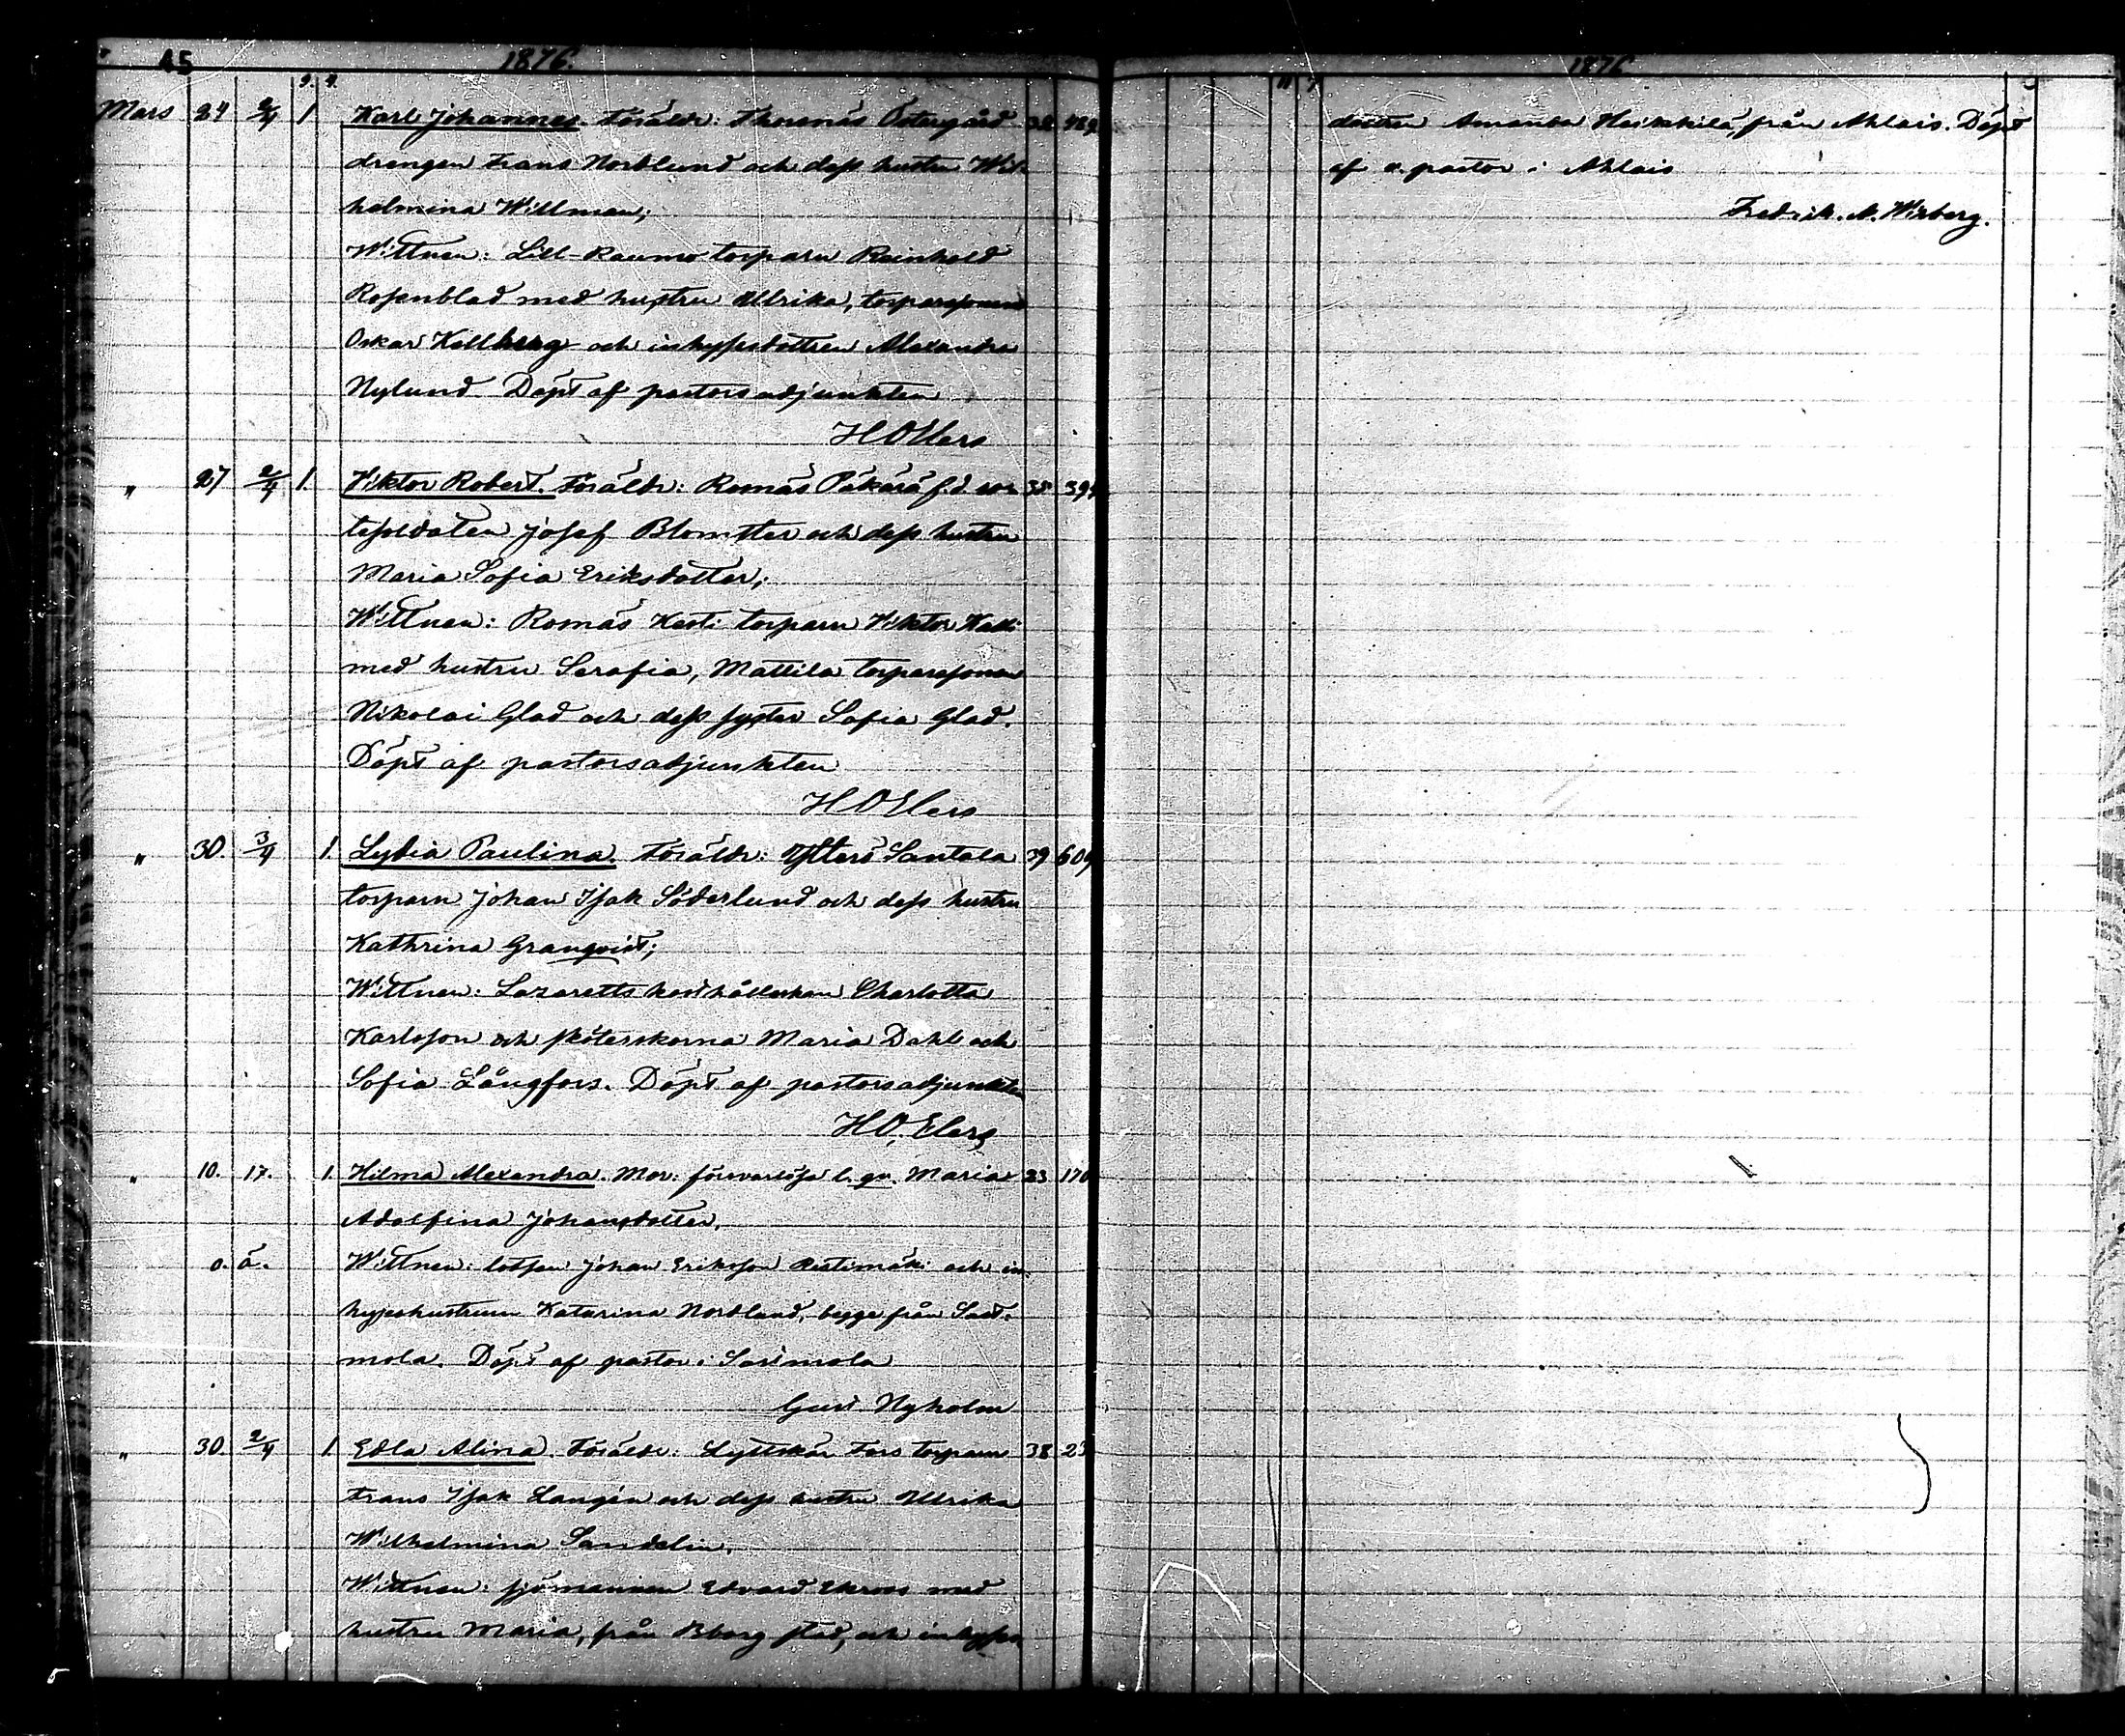 45 1876.
Mars 24 2/4 1 Karl Johannes. Föräldr: Thorsnäs Östergård 32 429
drengen Frans Nordlund och dess hustru Wil-
helmina Willman;
Wittnen: Lill-Raumo torparn Reinhold
Rosenblad med hustru Ulrika, torparesonen
Oskar Kellberg och inhysesdottren Alexandra
Nylund. Döpt af pastorsadjunkten
H O Elers
" 27 2/4 1. Viktor Robert. Föräldr: Rosnäs Päkärä f.d. ro- 35 399
tesoldaten Josef Blomster och dess hustru
Maria Sofia Eriksdotter;
Wittnen: Rosnäs Kesti torparn Viktor Kalli
med hustru Serafia, Mattila torparesonen
Nikolai Glad och dess syster Sofia Glad.
Döpt af pastorsadjunkten
H O Elers
" 30. 3/4 1. Lydia Paulina. Föräldr: Ytterö Santala 39 609
torparn Johan Isak Söderlund och dess hustru
Kathrina Granqvist;
Wittnen: Lazaretts hushållerskan Charlotta
Karlsson och sköterskorna Maria Dahl och
Sofia Långfors. Döpt af pastorsadjunkten
H O, Elers
" 10. 17. 1. Hilma Alexandra. Mor: försvarlösa l. qv. Maria 23 170
Adolfina Johansdotter.
o. ä. Wittnen: lotsen Johan Eriksson Ristimäki och in-
hyseshustrun Katarina Nordlund, begge från Sast-
mola. Döpt af pastor i Sastmola
Gust Nyholm
" 30. 2/4 1. Edla Alina. Föräldr: Lyttskär Fors torparn 38 23
Frans Isak Langén och dess hustru Ulrika
Wilhelmina Sandelin.
Wittnen: sjömannen Edvard Ekroos med
hustru Maria, från Bborg stad, och inhyses
1876
dottren Amanda Heikkilä, från Ahlais. Döpt
af v. pastor i Ahlais
Fredrik. A. Wiberg.